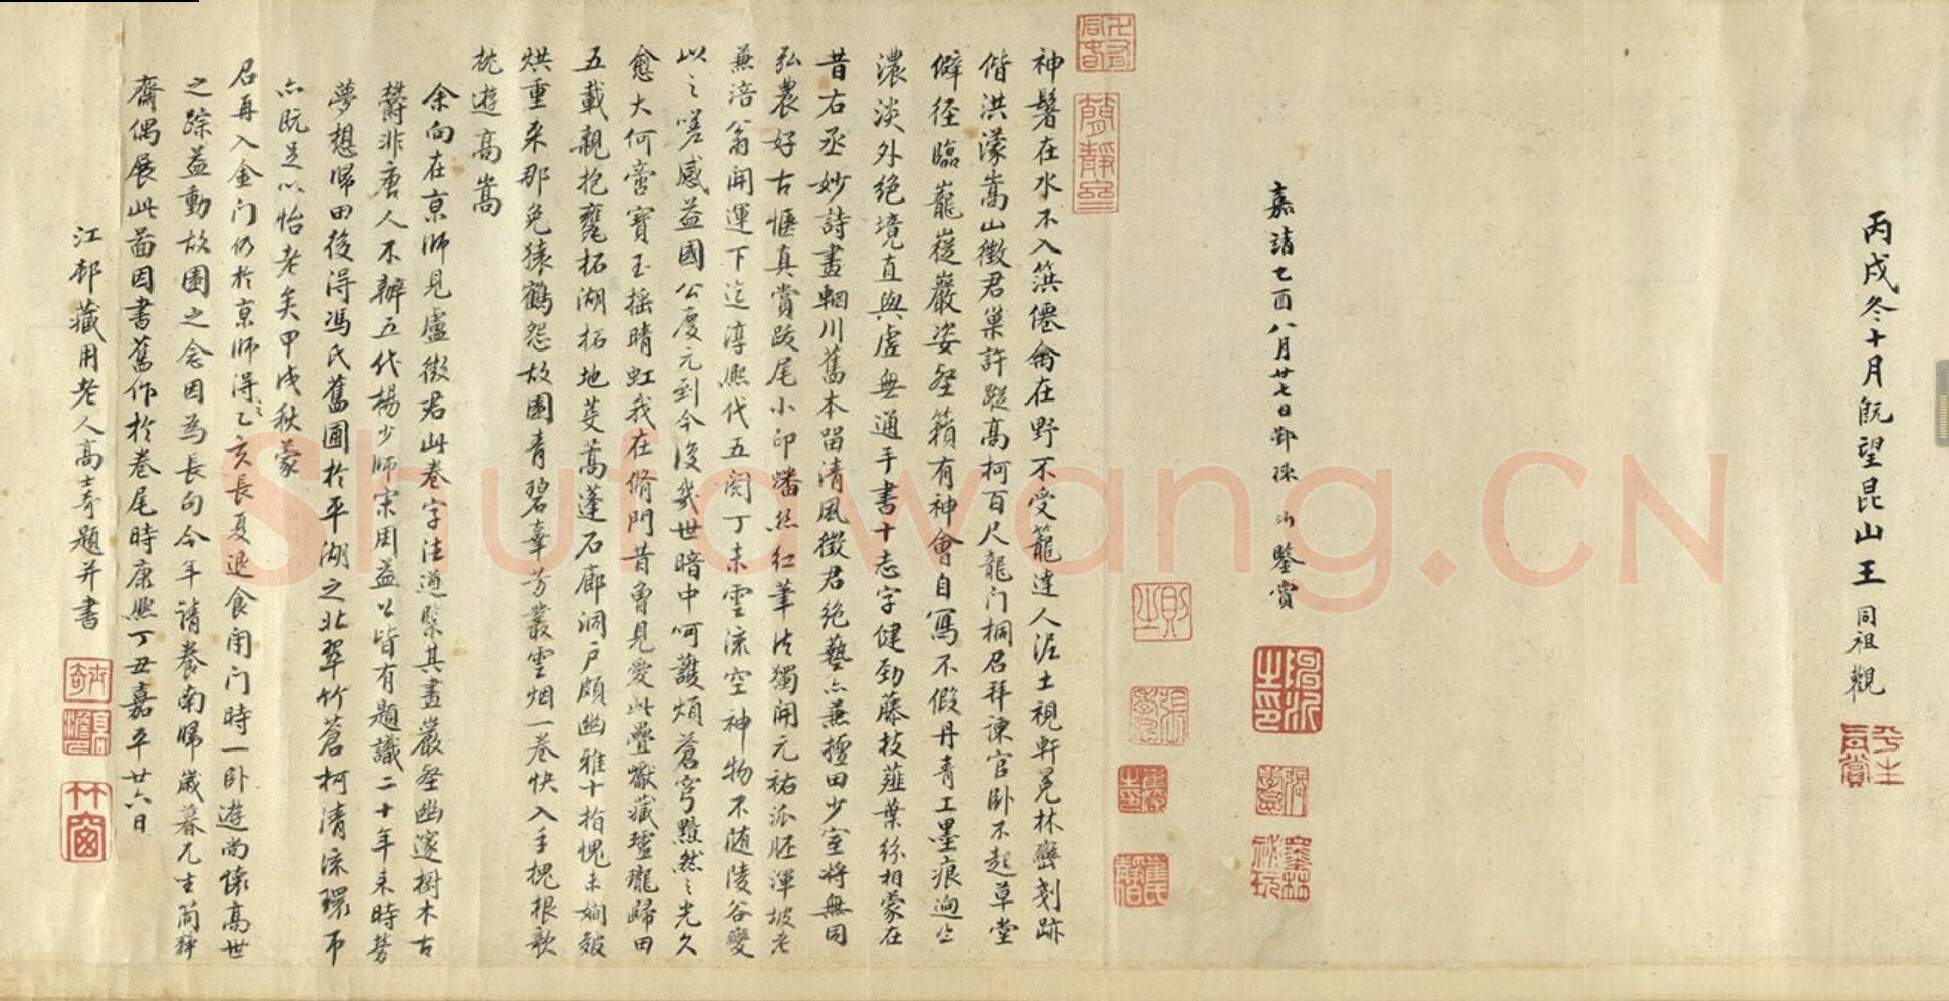 丙戌冬十月既望昆山王同祖觀
嘉靖乙酉八月廿七日鄞 鑒賞
神鬐在水不入箕僊禽在野不受籠達人泥土視軒冕林巒刻跡
偕洪濛嵩山徵君巢許蹤高柯百尺龍門桐召拜諫官臥不起草堂
僻徑臨巃嵸巖姿壑籟有神會自寫不假丹青工墨痕
濃淡外絕境直與虛無通手書十志字健勁藤枝薤葉紛相蒙在
昔右丞妙詩畫輞川舊本留清風徵君絕藝亦兼擅田少室將無同
弘農好古愜真賞跋尾小印蟠絲紅筆法獨開元祐派胚渾坡老
兼涪翁開運下迄淳熙代五閱丁未雲流空神物不随陵谷變
以之嗟感益國公慶元到今後幾世暗中呵護煩蒼穹黯然之光久
愈大何啻寶玉摇晴虹我在脩門昔曾見愛此疊巘藏瓏瓏歸田
五載親抱甕拓湖拓地芟蒿蓬石廊洞户頗幽雅十指愧未 皴
烘重来那免猿鶴怨故園青碧牽芳叢雲烟一卷快入手槐根欹
枕遊高嵩
余向在京師見盧徵君此卷字法遒緊其畫嚴壑幽邃樹木古
欝非唐人不辦五代楊少師宋周益公皆有題識二十年来時勞
夢想歸田後得馮氏舊圃於平湖之北翠竹蒼柯清流環帀
亦既足以怡老矣甲戌秋蒙
召再入金门仍於京師得之乙亥長夏退食閉门時一臥遊尚懷高世
之踪益動故園之念因為長句今年請養南歸歲暮无 簡靜
齋偶展此啚因書舊作於卷尾時康熙丁丑嘉平廿六日
江邨藏用老人高士奇題并書
Shufawang.CN